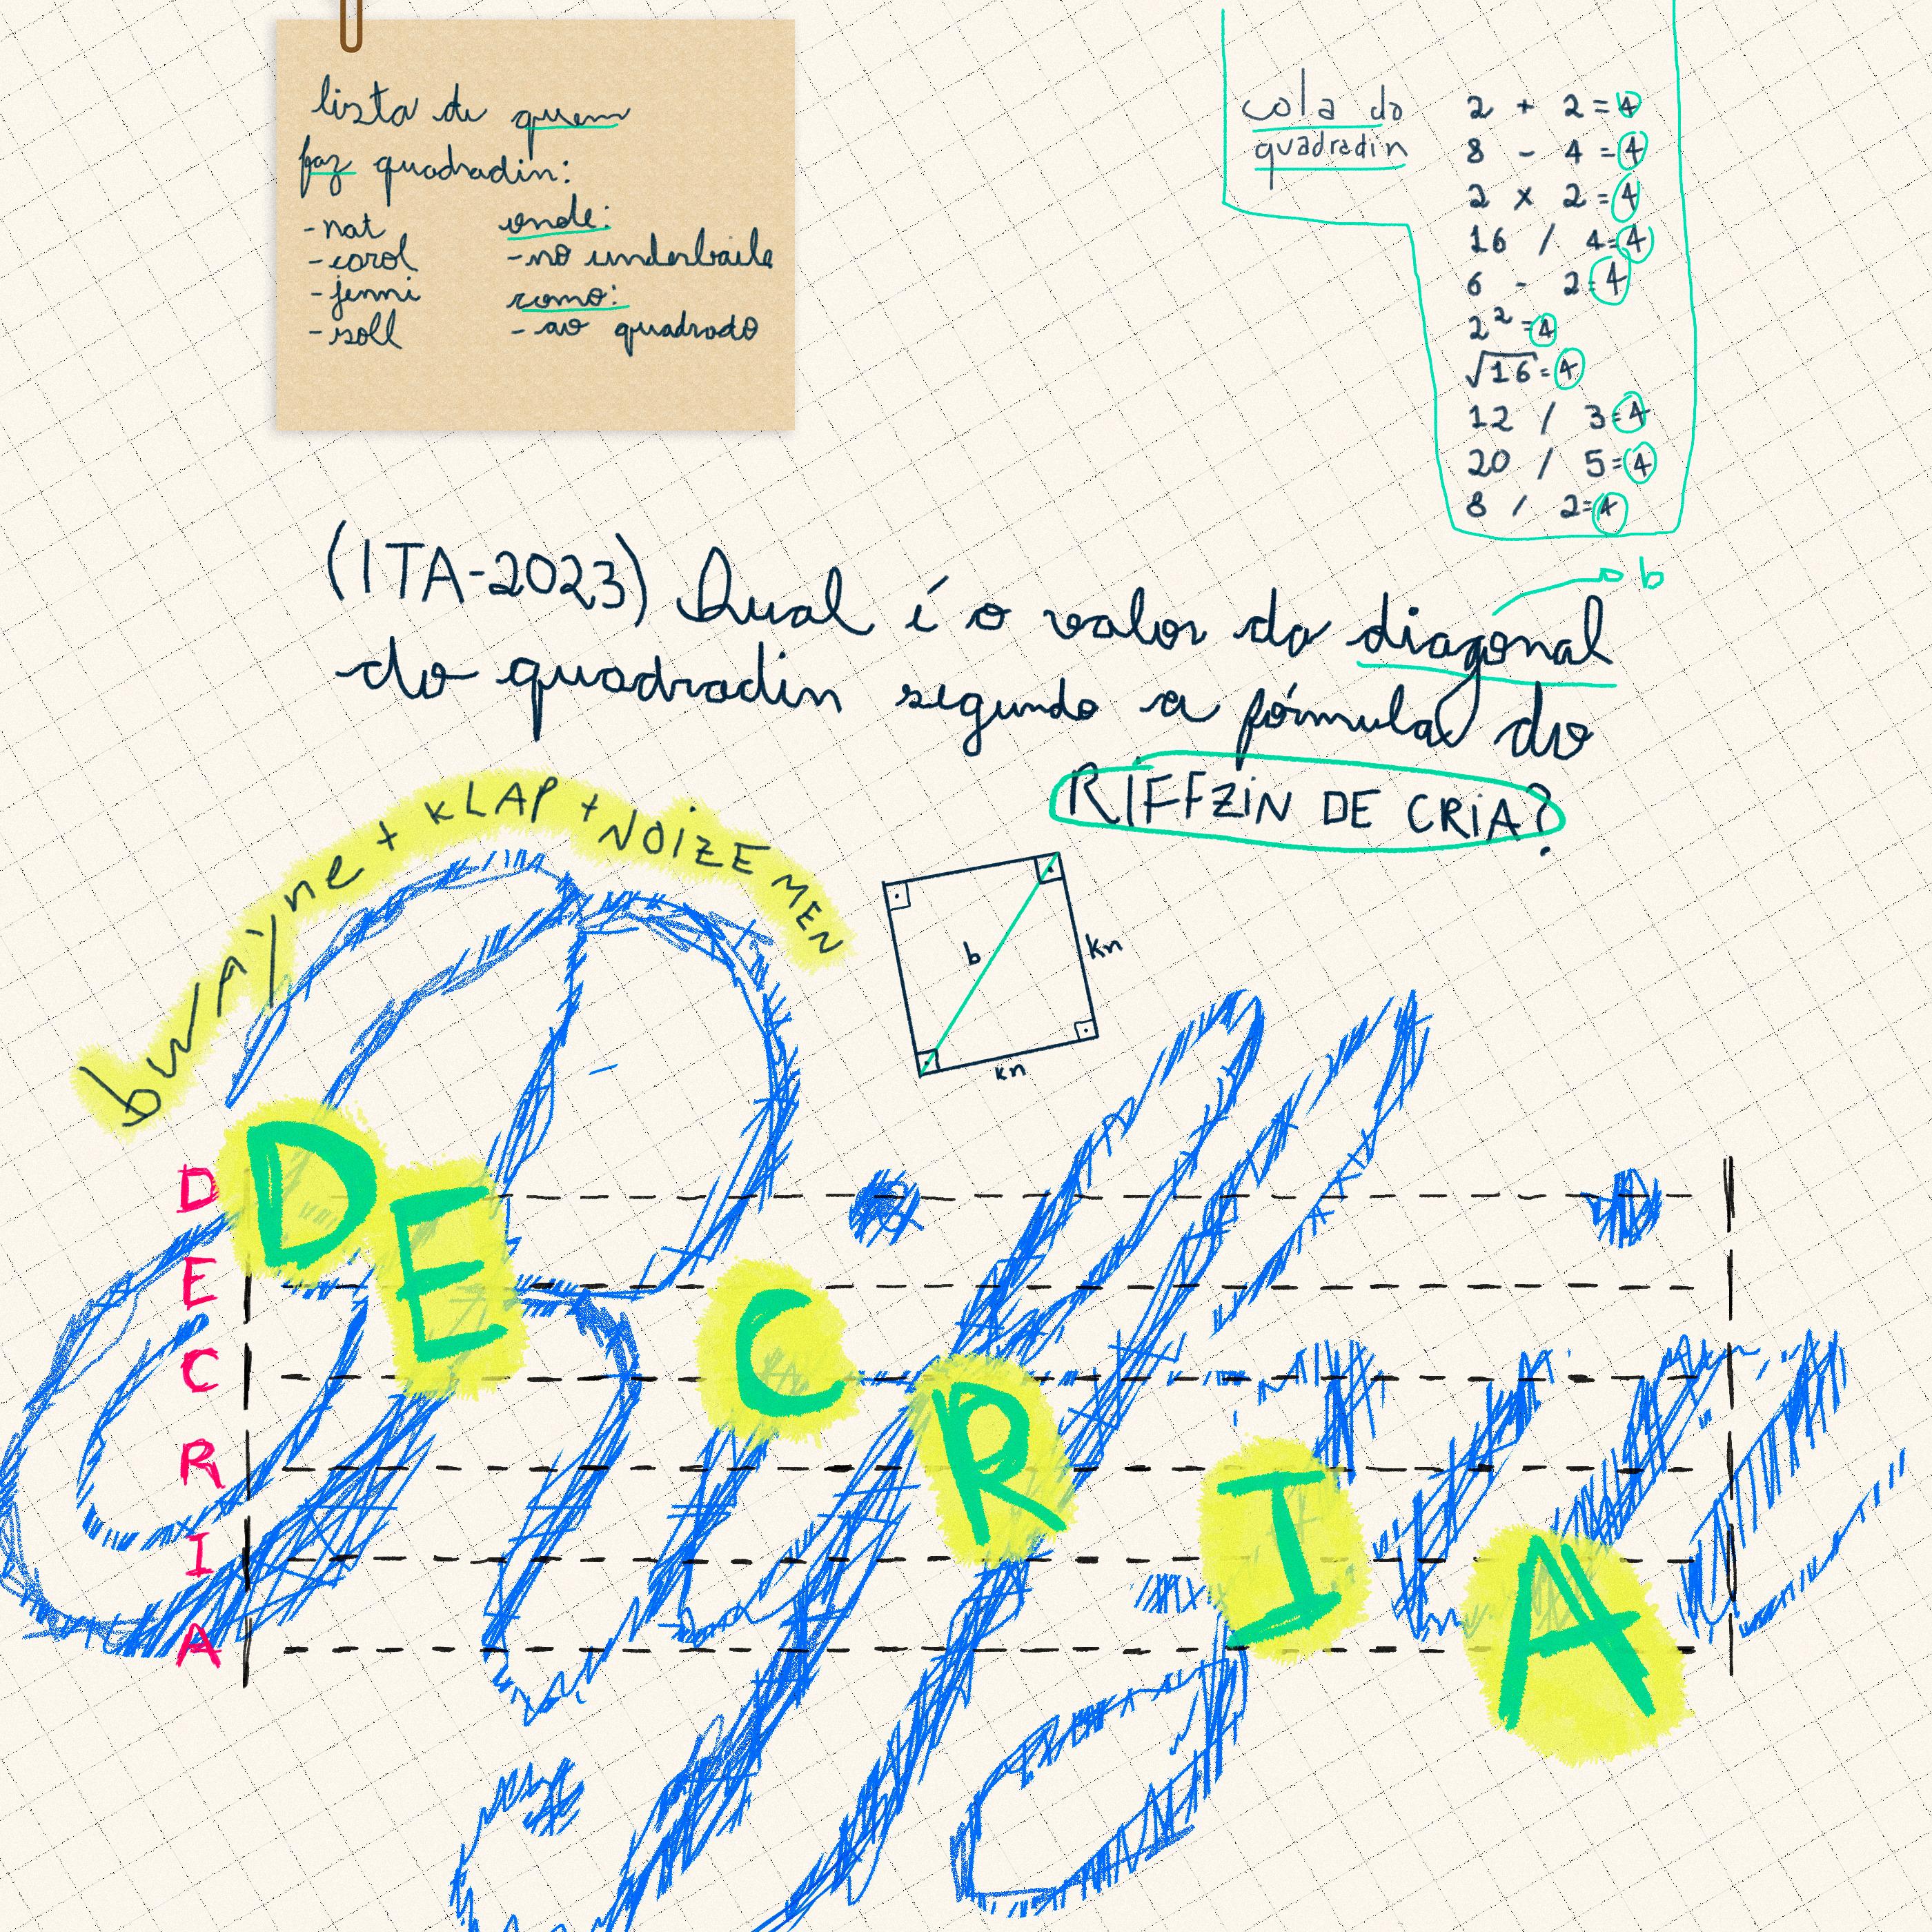 lista de quem
faz quadradin:
- nat
- carol
- jenni
- soll
onde:
- no underbaile
como:
- ao quadrado
cola do
quadradin
2 + 2 = 4
8 - 4 = 4
2 x 2 = 4
16 / 4 = 4
6 - 2 = 4
2² = 4
√16 = 4
12 / 3 = 4
20 / 5 = 4
8 / 2 = 4
b
(ITA-2023) Qual é o valor da diagonal
do quadradin segundo a fórmula do
RIFFZIN DE CRIA?
bWAYne + KLAP + NOIZE MEN
b
kn
kn
Riffzin
D
E
C
R
I
A
DE CRIA